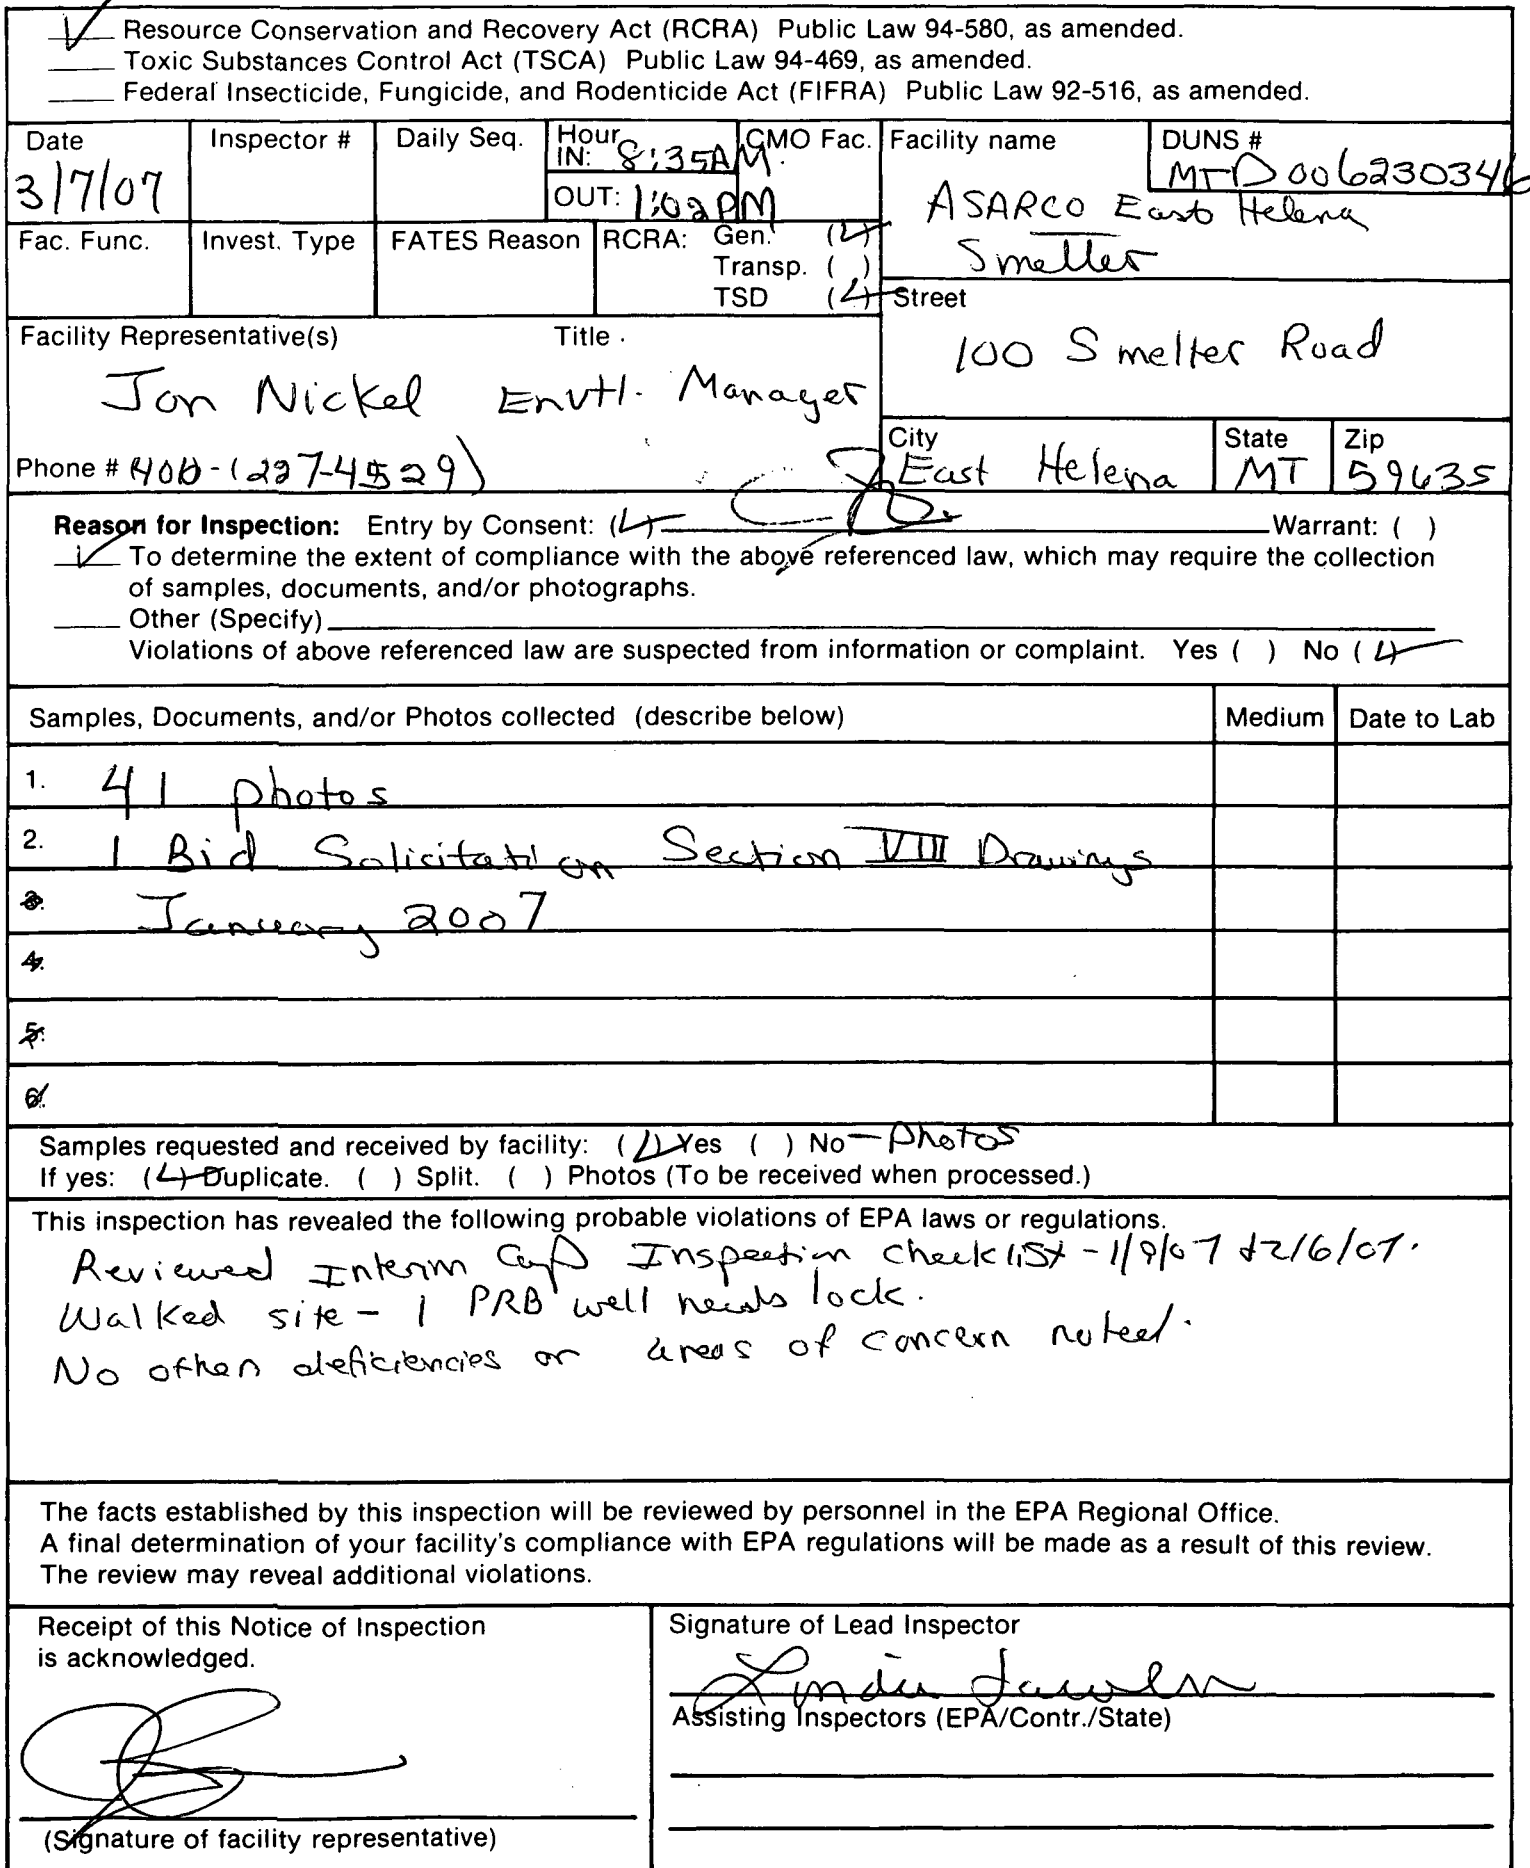 Resource Conservation and Recovery Act (RCRA) Public Law 94-580, as amended.
Toxic Substances Control Act (TSCA) Public Law 94-469, as amended.
Federal Insecticide, Fungicide, and Rodenticide Act (FIFRA) Public Law 92-516, as amended.
Date
3/7/07
Inspector #
Daily Seq.
Hour
IN: 8:35AM
OUT: 1:02PM
CMO Fac.
Facility name
DUNS #
MTD006230346
ASARCO East Helena
Smelter
Fac. Func.
Invest. Type
FATES Reason
RCRA: Gen. ( )
Transp. ( )
TSD ( )
Street
100 Smelter Road
Facility Representative(s) Title
Jon Nickel Envtl. Manager
Phone # 406-(227-4529)
City
East Helena
State
MT
Zip
59635
Reason for Inspection: Entry by Consent: ( ) Warrant: ( )
To determine the extent of compliance with the above referenced law, which may require the collection
of samples, documents, and/or photographs.
Other (Specify)
Violations of above referenced law are suspected from information or complaint. Yes ( ) No ( )
Samples, Documents, and/or Photos collected (describe below)
Medium
Date to Lab
1. 41 photos
2. 1 Bid Solicitation Section VIII Drawings
3. January 2007
4.
5.
6.
Samples requested and received by facility: ( ) Yes ( ) No - Photos
If yes: ( ) Duplicate. ( ) Split. ( ) Photos (To be received when processed.)
This inspection has revealed the following probable violations of EPA laws or regulations.
Reviewed Interim Cap Inspection checklist - 1/9/07 + 2/6/07.
Walked site - 1 PRB well needs lock.
No other deficiencies or areas of concern noted.
The facts established by this inspection will be reviewed by personnel in the EPA Regional Office.
A final determination of your facility's compliance with EPA regulations will be made as a result of this review.
The review may reveal additional violations.
Receipt of this Notice of Inspection
is acknowledged.
(Signature of facility representative)
Signature of Lead Inspector
Linda
Assisting Inspectors (EPA/Contr./State)